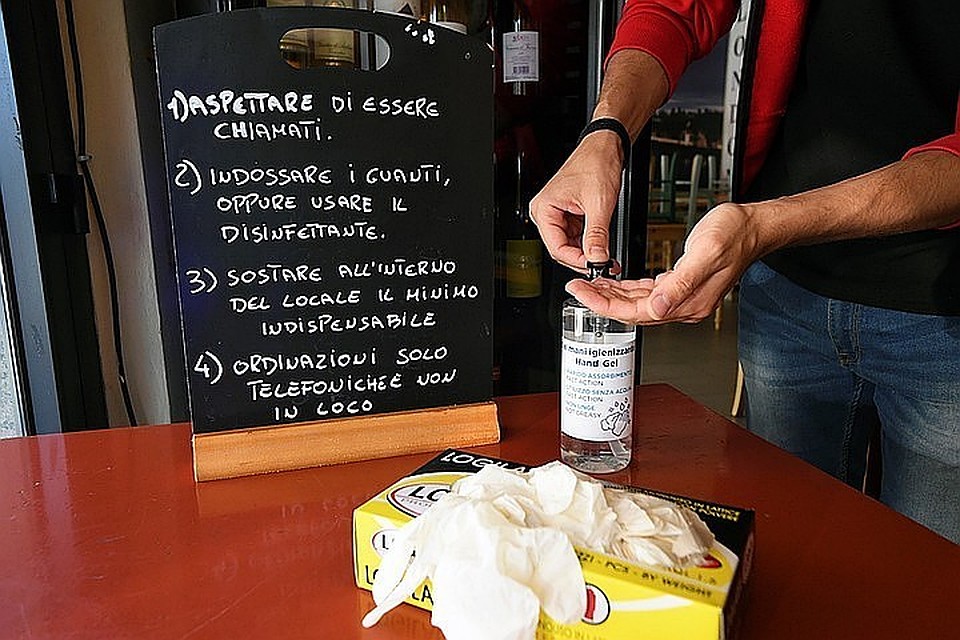 1) ASPETTARE DI ESSERE
CHIAMATI.
2) INDOSSARE I GUANTI,
OPPURE USARE IL
DISINFETTANTE.
3) SOSTARE ALL'INTERNO
DEL LOCALE IL MINIMO
INDISPENSABILE
4) ORDINAZIONI SOLO
TELEFONICHE E NON
IN LOCO
mani igienizzante
Hand Gel
RAPIDO ASSORBIMENTO
FAST ACTION
UTILIZZO SENZA ACQUA
FAST ACTION
NON UNGE
NOT GREASY
LOGILA
PCS - BY WEIGHT